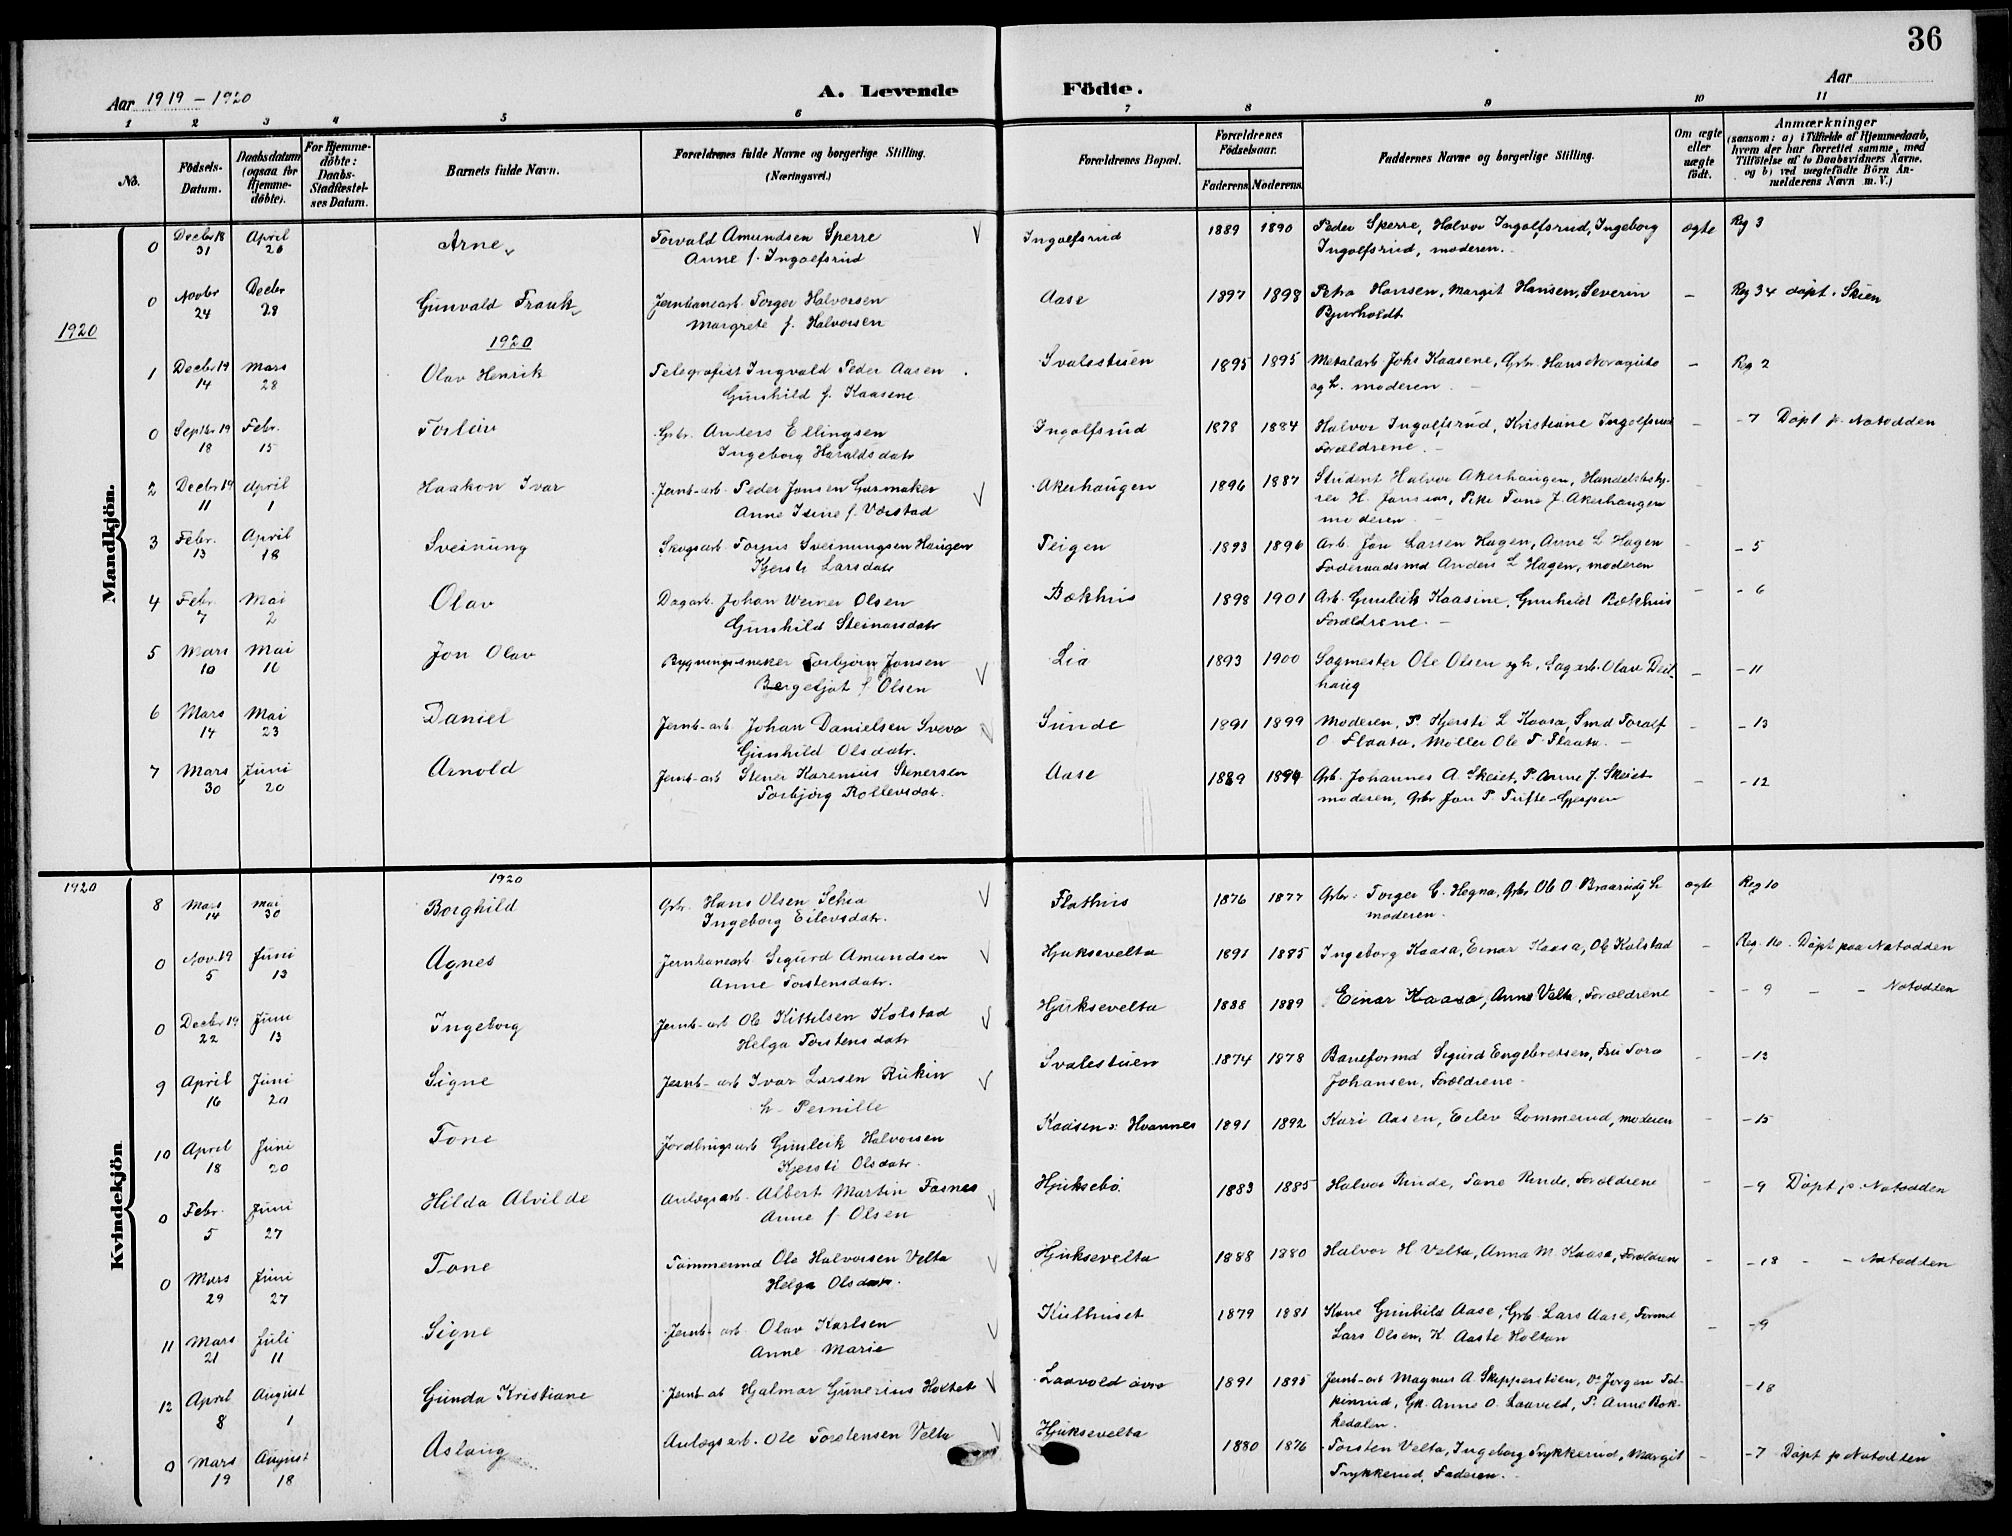 36
Aar 1919 - 1920
A. Levende Födte.
Aar
1 2 3 4 5 6 7 8 9 10 11
No.
Födsels-Datum.
Daabsdatum (ogsaa for Hjemme-döbte).
For Hjemme-döbte: Daabs-Stadfæstel-ses Datum.
Barnets fulde Navn.
Forældrenes fulde Navne og borgerlige Stilling. (Næringsvei.)
Forældrenes Bopæl.
Forældrenes Födselsaar.
Faderens Moderens
Faddernes Navne og borgerlige Stilling.
Om ægte eller uægte födt.
Anmærkninger
(saasom: a) i Tilfælde af Hjemmedaab, hvem der har forrettet samme, med Tilföielse af to Daabsvidners Navne. og b) ved uægtefödte Börn An-melderens Navn m. V.)
Mandkjön.
0 Decbr 18 31 April 20 Arne Torvald Amundsen Sperre Ingolfsrud 1889 1890 Peder Sperre, Halvor Ingolfsrud, Ingeborg ægte Reg 3
Anne f. Ingolfsrud Ingolfsrud, moderen.
0 Novbr 24 Decbr 28 Gunvald Frank Jernbanearb. Torger Halvorsen Aase 1897 1898 Petra Hansen, Margit Hansen, Severin - Reg 34 døpt i Skien
Margrete f. Halvorsen Bjurholdt
1920 1920
1 Decbr 19 14 Mars 28 Olav Henrik Telegrafist Ingvald Peder Aasen Svalestuen 1895 1895 Metalarb Johs Kaasene, Grbr. Hans Noragutu - Reg 2
Gunhild f. Kaasene og h. moderen.
0 Septbr 19 18 Febr. 15 Torleiv Grbr. Anders Ellingsen Ingolfsrud 1878 1884 Halvor Ingolfsrud, Kristiane Ingolfsrud - - 7 Døpt p. Notodden
Ingeborg Haraldsdatr Forældrene.
2 Decbr 19 11 April 1 Haakon Ivar Jernb-arb. Peder Jonsen Garmaker Akerhaugen 1896 1887 Student Halvor Akerhaugen, Handelsbesty-
Anne Isine f. Vorstad rer H. Pike Tone J. Akerhaugen
moderen
3 Febr. 13 April 18 Sveinung Skogsarb. Torjus Sveinungsen Haugen Teigen 1893 1896 Arb. Jon Larsen Hagen, Anne L Hagen - - 5
Kjersti Larsdatr Foderaadsmd Anders L Hagen, moderen
4 Febr. 7 Mai 2 Olav Dagarb. Johan Werner Olsen Bækhus 1898 1901 Arb. Gunleik Kaasine, Gunhild Bækhus - - 6
Gunhild Steinarsdatr Forældrene.
5 Mars 10 Mai 16 Jon Olav Bygningssneker Torbjørn Jonsen Lia 1893 1900 Sagmester Ole Olsen og h, Sagarb. Olav Deil- - - 11
Bergetjøt f. Olsen haug
6 Mars 14 Mai 23 Daniel Jernb-arb Johan Danielsen Svevo Sunde 1891 1899 Moderen, P. Kjersti L Kaasa, Smd Toralf - - 13
Gunhild Olsdatr. O Flaata, Møller Ole T. Flaata.
7 Mars 30 Juni 20 Arnold Jernb-arb Stener Karenius Stenersen Aase 1889 1894 Grb. Johannes A. Skeiet, P. Anne J. Skeiet - - 12
Torbjørg Rollevsdatr. moderen, Grbr Jon P. Tufte - Gjerpen
Kvindekjön
1920 1920
8 Mars 14 Mai 30 Borghild Grbr. Hans Olsen Schia Flathus 1876 1877 Grbr. Torger G. Hegna, Grbr Ole O Braarudj h ægte Reg 10
Ingeborg Eilevsdatr. moderen.
0 Nov. 19 5 Juni 13 Agnes Jernbanearb Sigurd Amundsen Hjuksevelta 1891 1885 Ingeborg Kaasa, Einar Kaasa, Ole Kolstad - Reg. 16. Døpt paa Notodden
Anne Torstensdatr.
0 Decbr 19 22 Juni 13 Ingeborg Jernb-arb Ole Kittilsen Kolstad Hjuksevelta 1888 1889 Einar Kaasa, Anne Velta, Forældrene - - 9 - - Notodden
Helga Torstensdatr
9 April 16 Juni 20 Signe Jernb-arb Ivar Larsen Rukin Svalestuen 1874 1878 Baneformd Sigurd Engebretsen, Fru Tora - - 12
h. Pernille Johansen, Forældrene.
10 April 18 Juni 20 Tone Jordbrugsarb Gunleik Halvorsen Kaasen u. Hvannes 1891 1892 Kari Aasen, Eilev Lommerud, moderen - - 15
Kjersti Olsdatr.
0 Febr. 5 Juni 27 Hilda Alvilde Anlægsarb. Albert Martin Fosnes Hjuksebö 1883 1885 Halvor Rinde, Tone Rinde, Forældrene - - 9 Døpt p. Notodden
Anne f. Olsen
0 Mars 29 Juni 27 Tone Tömmermd Ole Halvorsen Velta Hjuksevelta 1888 1880 Halvor H Velta, Anna M. Kaasa, Forældrene - - 18 - - Notodden
Helga Olsdatr.
11 Mars 21 Juli 11 Signe Jernb-arb Olav Karlsen Kulthuset 1879 1881 Kone Gunhild Aase, Grb. Lars Aase, Formd - - 9
Anne Marie Lars Olsen, K. Aaste Holtan
12 April 8 August 1 Gunda Kristiane Jernb-arb Hjalmar Gunerius Holtet Laavold övre 1891 1895 Jernb-arb Magnus A. Skipperstuen, Do Jörgen Fol- - 18
kinrud, Gk. Anne O. Laavold, P. Anne Bok-
kedalen.
0 Mars 19 August 18 Aslaug Anlægsarb. Ole Torstensen Velta Hjuksevelta 1880 1876 Torsten Velta, Ingeborg Trykkerud, Margit - - 7 Døpt p Notodden
Trykkerud, Faderen.